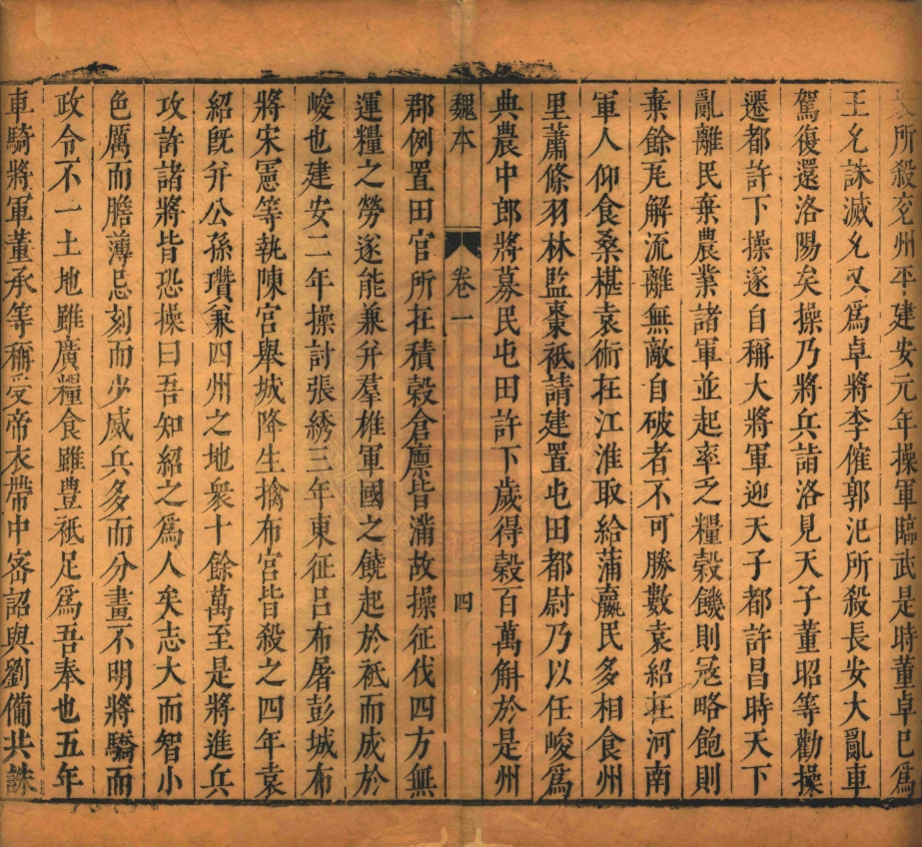 所殺兗州平建安元年操軍臨武是時董卓已爲
王允誅滅允又爲卓將李傕郭汜所殺長安大亂車
駕復還洛陽矣操乃將兵詣洛見天子董昭等勸操
遷都許下操遂自稱大將軍迎天子都許昌時天下
亂離民棄農業諸軍並起率乏糧穀饑則寇略飽則
棄餘瓦解流離無敵自破者不可勝數袁紹在河南
軍人仰食桑椹袁術在江淮取給蒲蠃民多相食州
里蕭條羽林監棗祗請建置屯田都尉乃以任峻爲
典農中郎將募民屯田許下歲得穀百萬斛於是州
魏本 卷一 四
郡例置田官所在積穀倉廪皆滿故操征伐四方無
運糧之勞遂能兼并羣雄軍國之饒起於祗而成於
峻也建安二年操討張綉三年東征呂布屠彭城布
將宋憲等執陳宮舉城降生擒布宮皆殺之四年袁
紹旣并公孫瓚兼四州之地衆十餘萬至是將進兵
攻許諸將皆恐操曰吾知紹之爲人矣志大而智小
色厲而膽薄忌刻而少威兵多而分畫不明將驕而
政令不一土地雖廣糧食雖豊祗足爲吾奉也五年
車騎將軍董承等稱受帝衣帶中密詔與劉備共誅